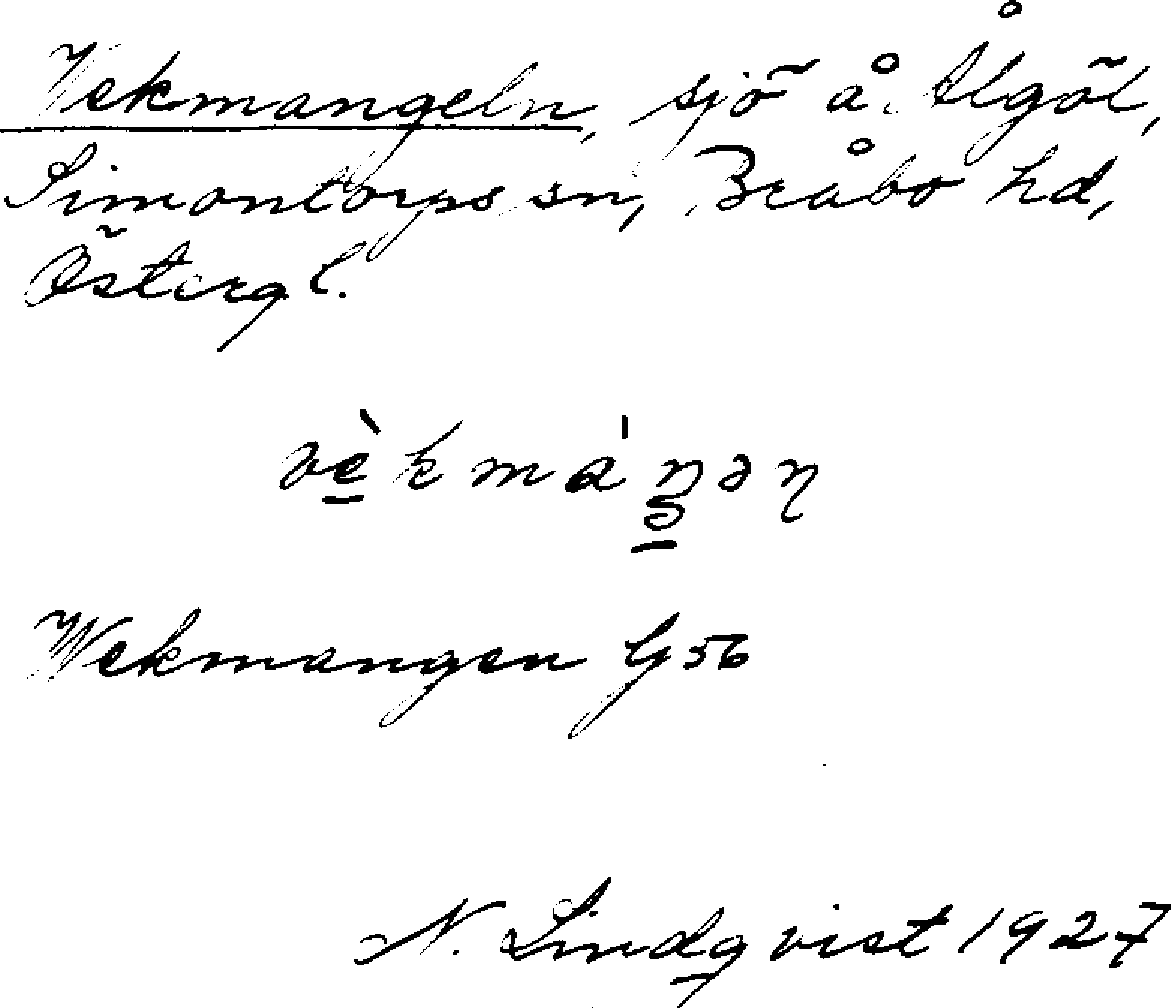 Vekmangeln, sjö å Ålgöl,
Simontorps sn, Bråbo hd,
Östergl.
vèkmáŋən
Wekmangen G 56
N. Lindqvist 1927